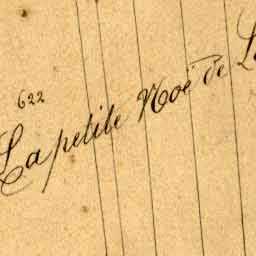 622
La petite Noë de L